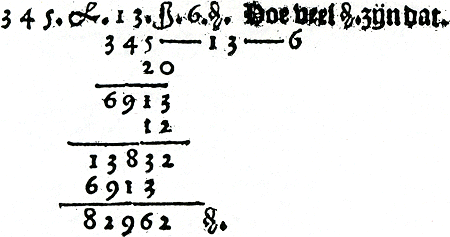 345. ₰. 13. ß. 6. ₰. Hoe veel ₰. zijn dat.
345 — 13 — 6
20
6913
12
13832
6913
82962 ₰.